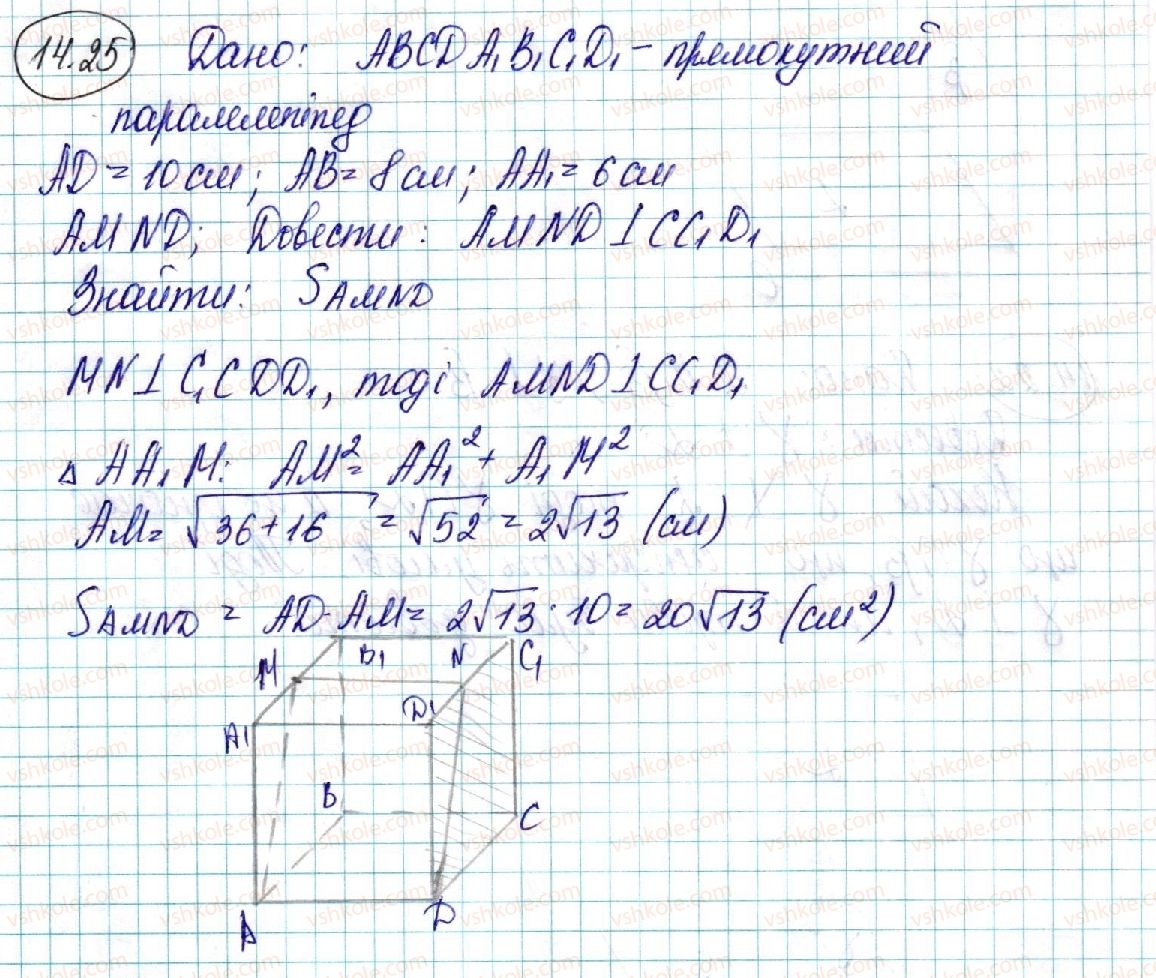 14.25 Дано: ABCDA₁B₁C₁D₁ – прямокутний
паралелепіпед
AD = 10 см; AB = 8 см; AA₁ = 6 см
AMND; Довести: AMND ⊥ CC₁D₁
Знайти: S_AMND
MN ⊥ C₁CDD₁, тоді AMND ⊥ CC₁D₁
△ AA₁M: AM² = AA₁² + A₁M²
AM = √(36+16) = √52 = 2√13 (см)
S_AMND = AD · AM = 2√13 · 10 = 20√13 (см²)
M B₁ N C₁
A₁ D₁
B C
A D
vshkole.com